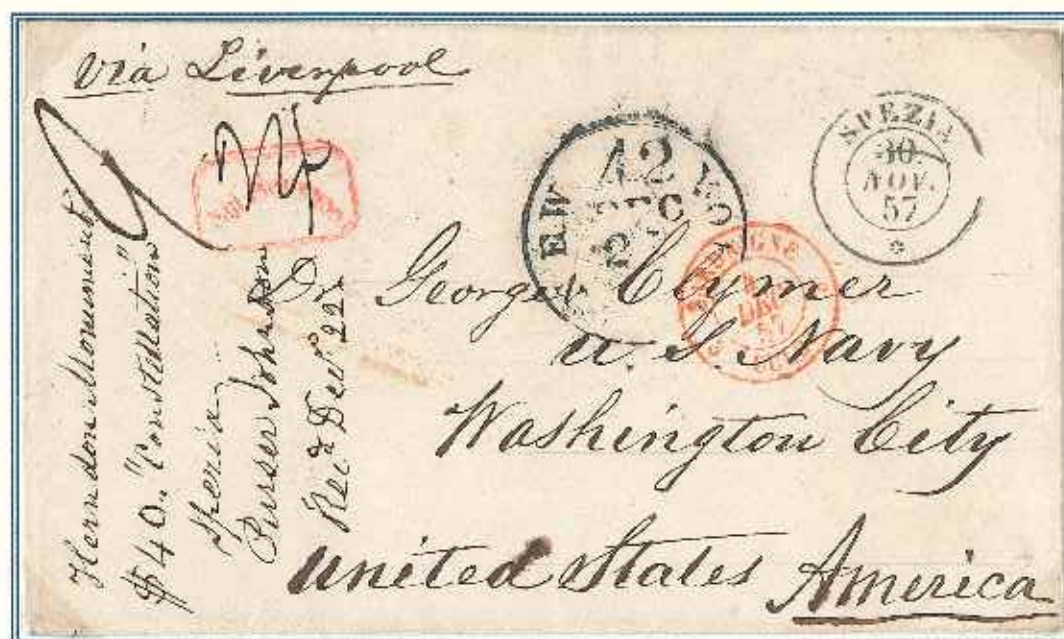 via Liverpool
SPEZIA
30
NOV.
57
42
DEC
Dr. George Clymer
U. S. Navy
Washington City
United States America
Herndon Monument
$40. "Constellation"
Spezia
Purser Johnson
Rec'd Dec 22